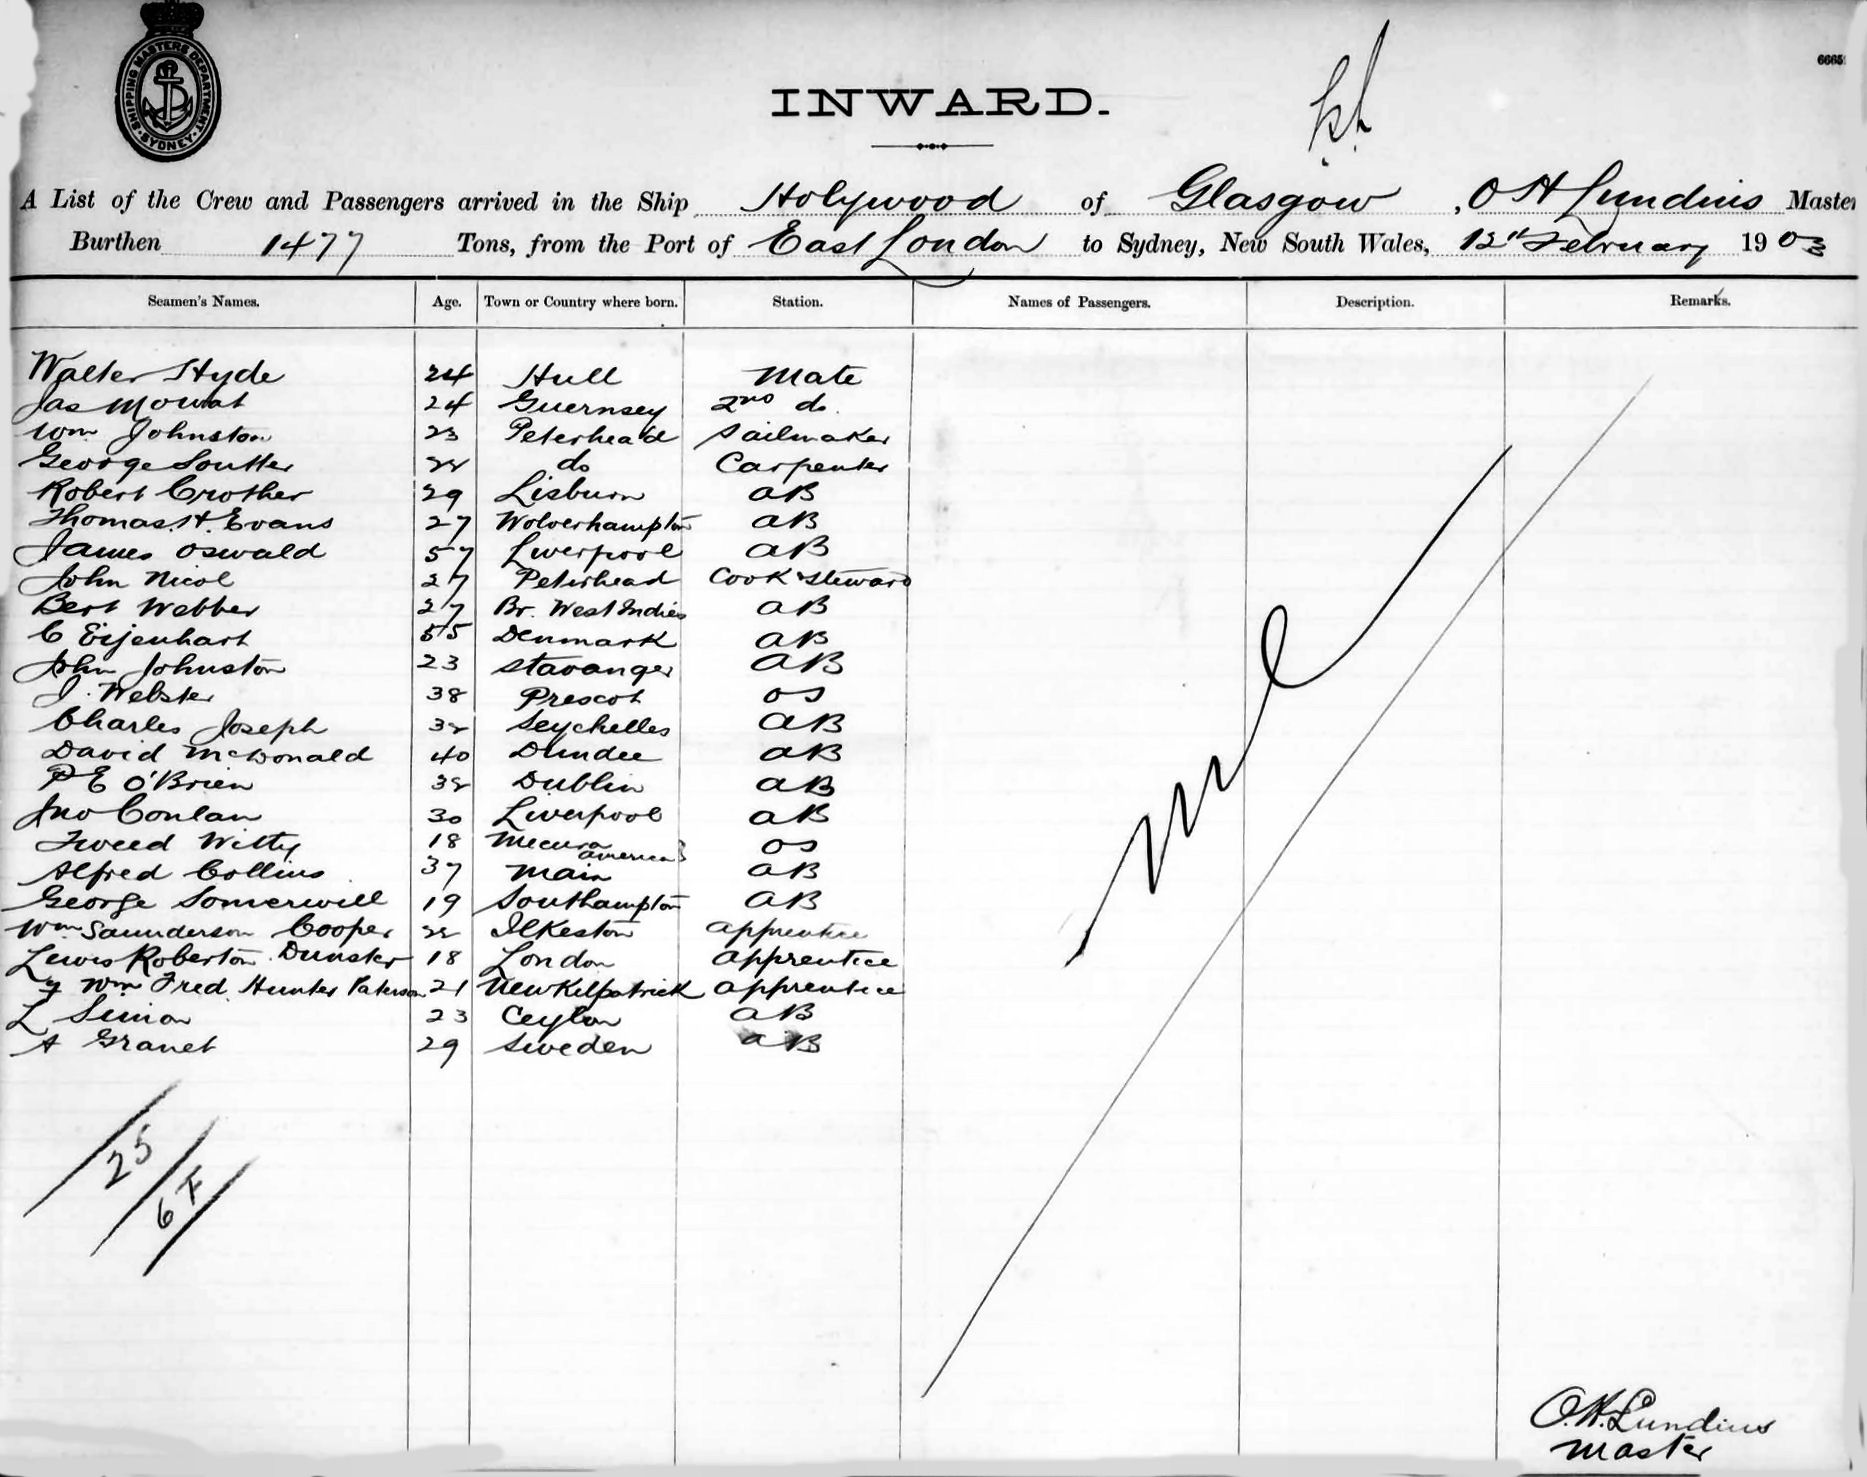 SHIPPING MASTERS DEPARTMENT · SYDNEY ·
6665
INWARD.
A List of the Crew and Passengers arrived in the Ship Holywood of Glasgow, O H Lundius Master
Burthen 1477 Tons, from the Port of East London to Sydney, New South Wales, 12th February 1903
Seamen's Names. Age. Town or Country where born. Station. Names of Passengers. Description. Remarks.
Walter Hyde 24 Hull Mate
Jas Mowat 24 Guernsey 2nd do.
Wm Johnston 23 Peterhead Sailmaker
George Soutter 22 do Carpenter
Robert Crother 29 Lisburn AB
Thomas. H. Evans 27 Wolverhampton AB
James Oswald 57 Liverpool AB
John Nicol 27 Peterhead Cook & Steward
Bert Webber 27 Br. West Indies AB
C Eijenhart 55 Denmark AB
John Johnston 23 Stavanger AB
J. Webster 38 Prescot OS
Charles Joseph 32 Seychelles AB
David McDonald 40 Dundee AB
P E O'Brien 32 Dublin AB
Jno Conlan 30 Liverpool AB
Tweed Witty 18 America OS
Alfred Collins 37 Main AB
George Somerwill 19 Southampton AB
Wm Saunderson Cooper 22 Ilkeston apprentice
Lewis Roberton Dunster 18 London apprentice
Wm Fred Hunter Paterson 21 New Kilpatrick apprentice
L Simon 23 Ceylon AB
A Granet 29 Sweden AB
nil
25
6 F
O.H. Lundius
Master